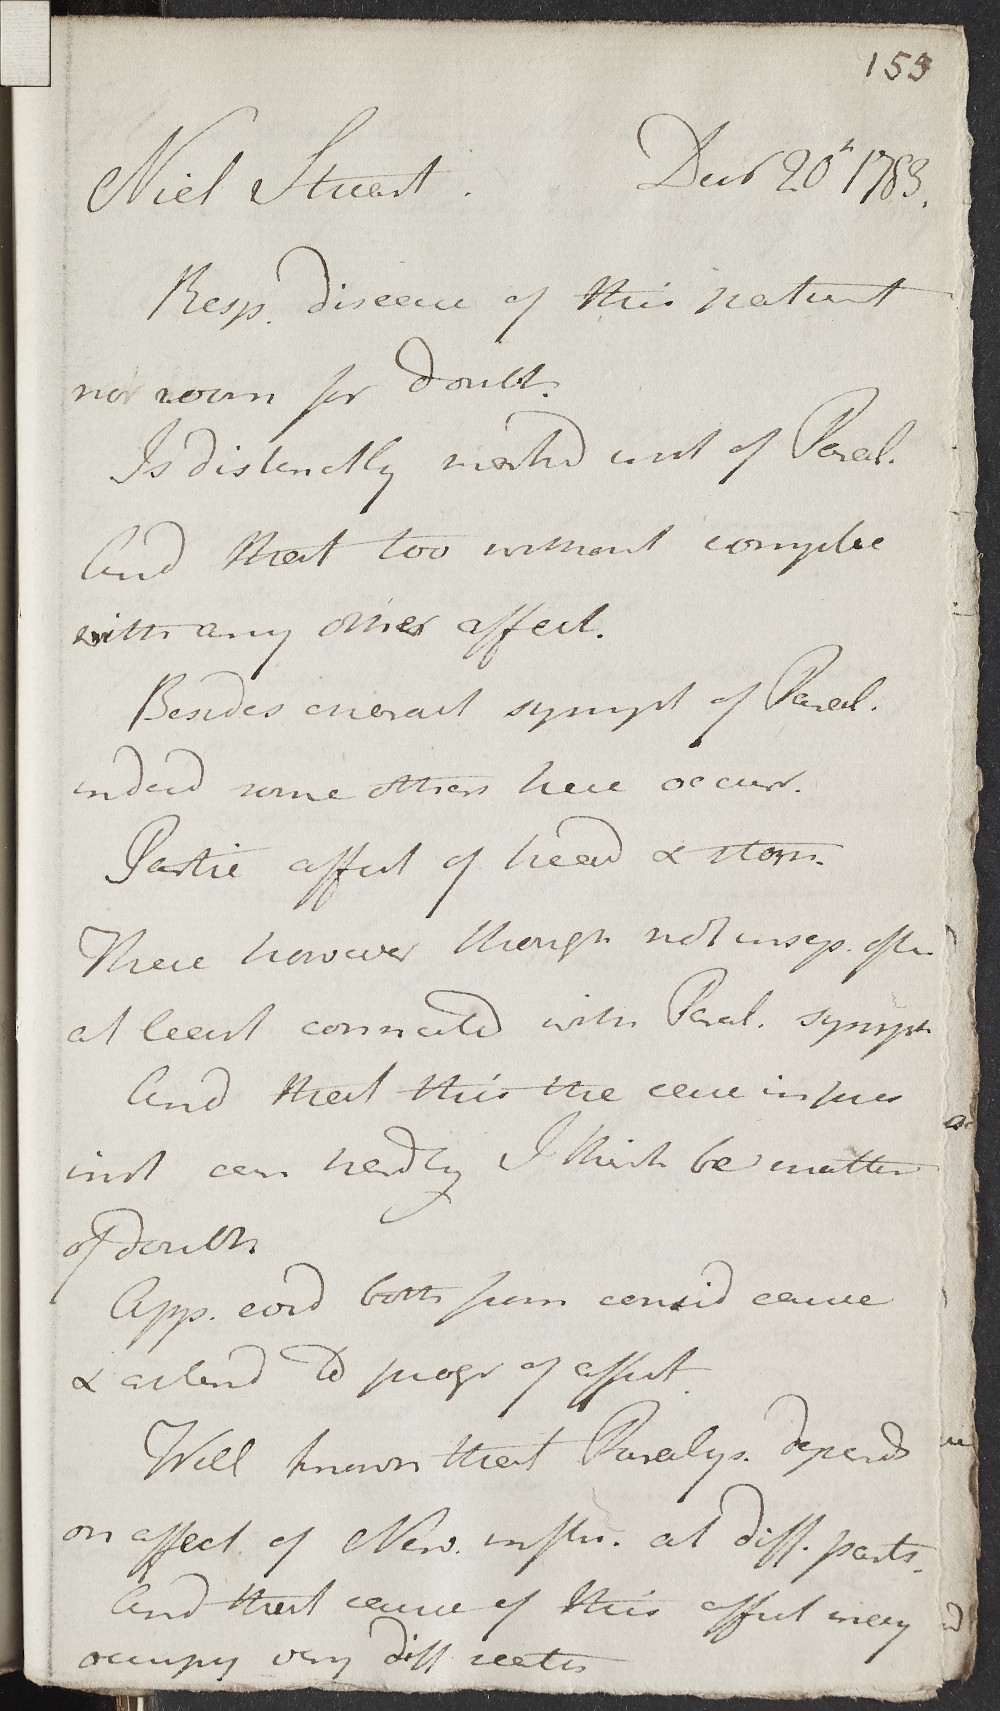 153
Niel Stuart. Decr 20th 1783.
Resp. disease of this patient
no room for doubt.
Is distinctly markd inst of Paral.
And that too without complic
with any other affect.
Besides characct sympt of Paral.
indeed some others here occurr.
Partic affect of head & stom.
These however though not insep. often
at least connected with Paral. sympt
And that this the case in pres
inst can hardly I think be matter
of doubt.
App. cord both from consid cause
& attend to progr of affect.
Well known that Paralys. depends
on affect of Nerv. influ. at diff. parts.
And that cause of this affect may
occupy very diff seats